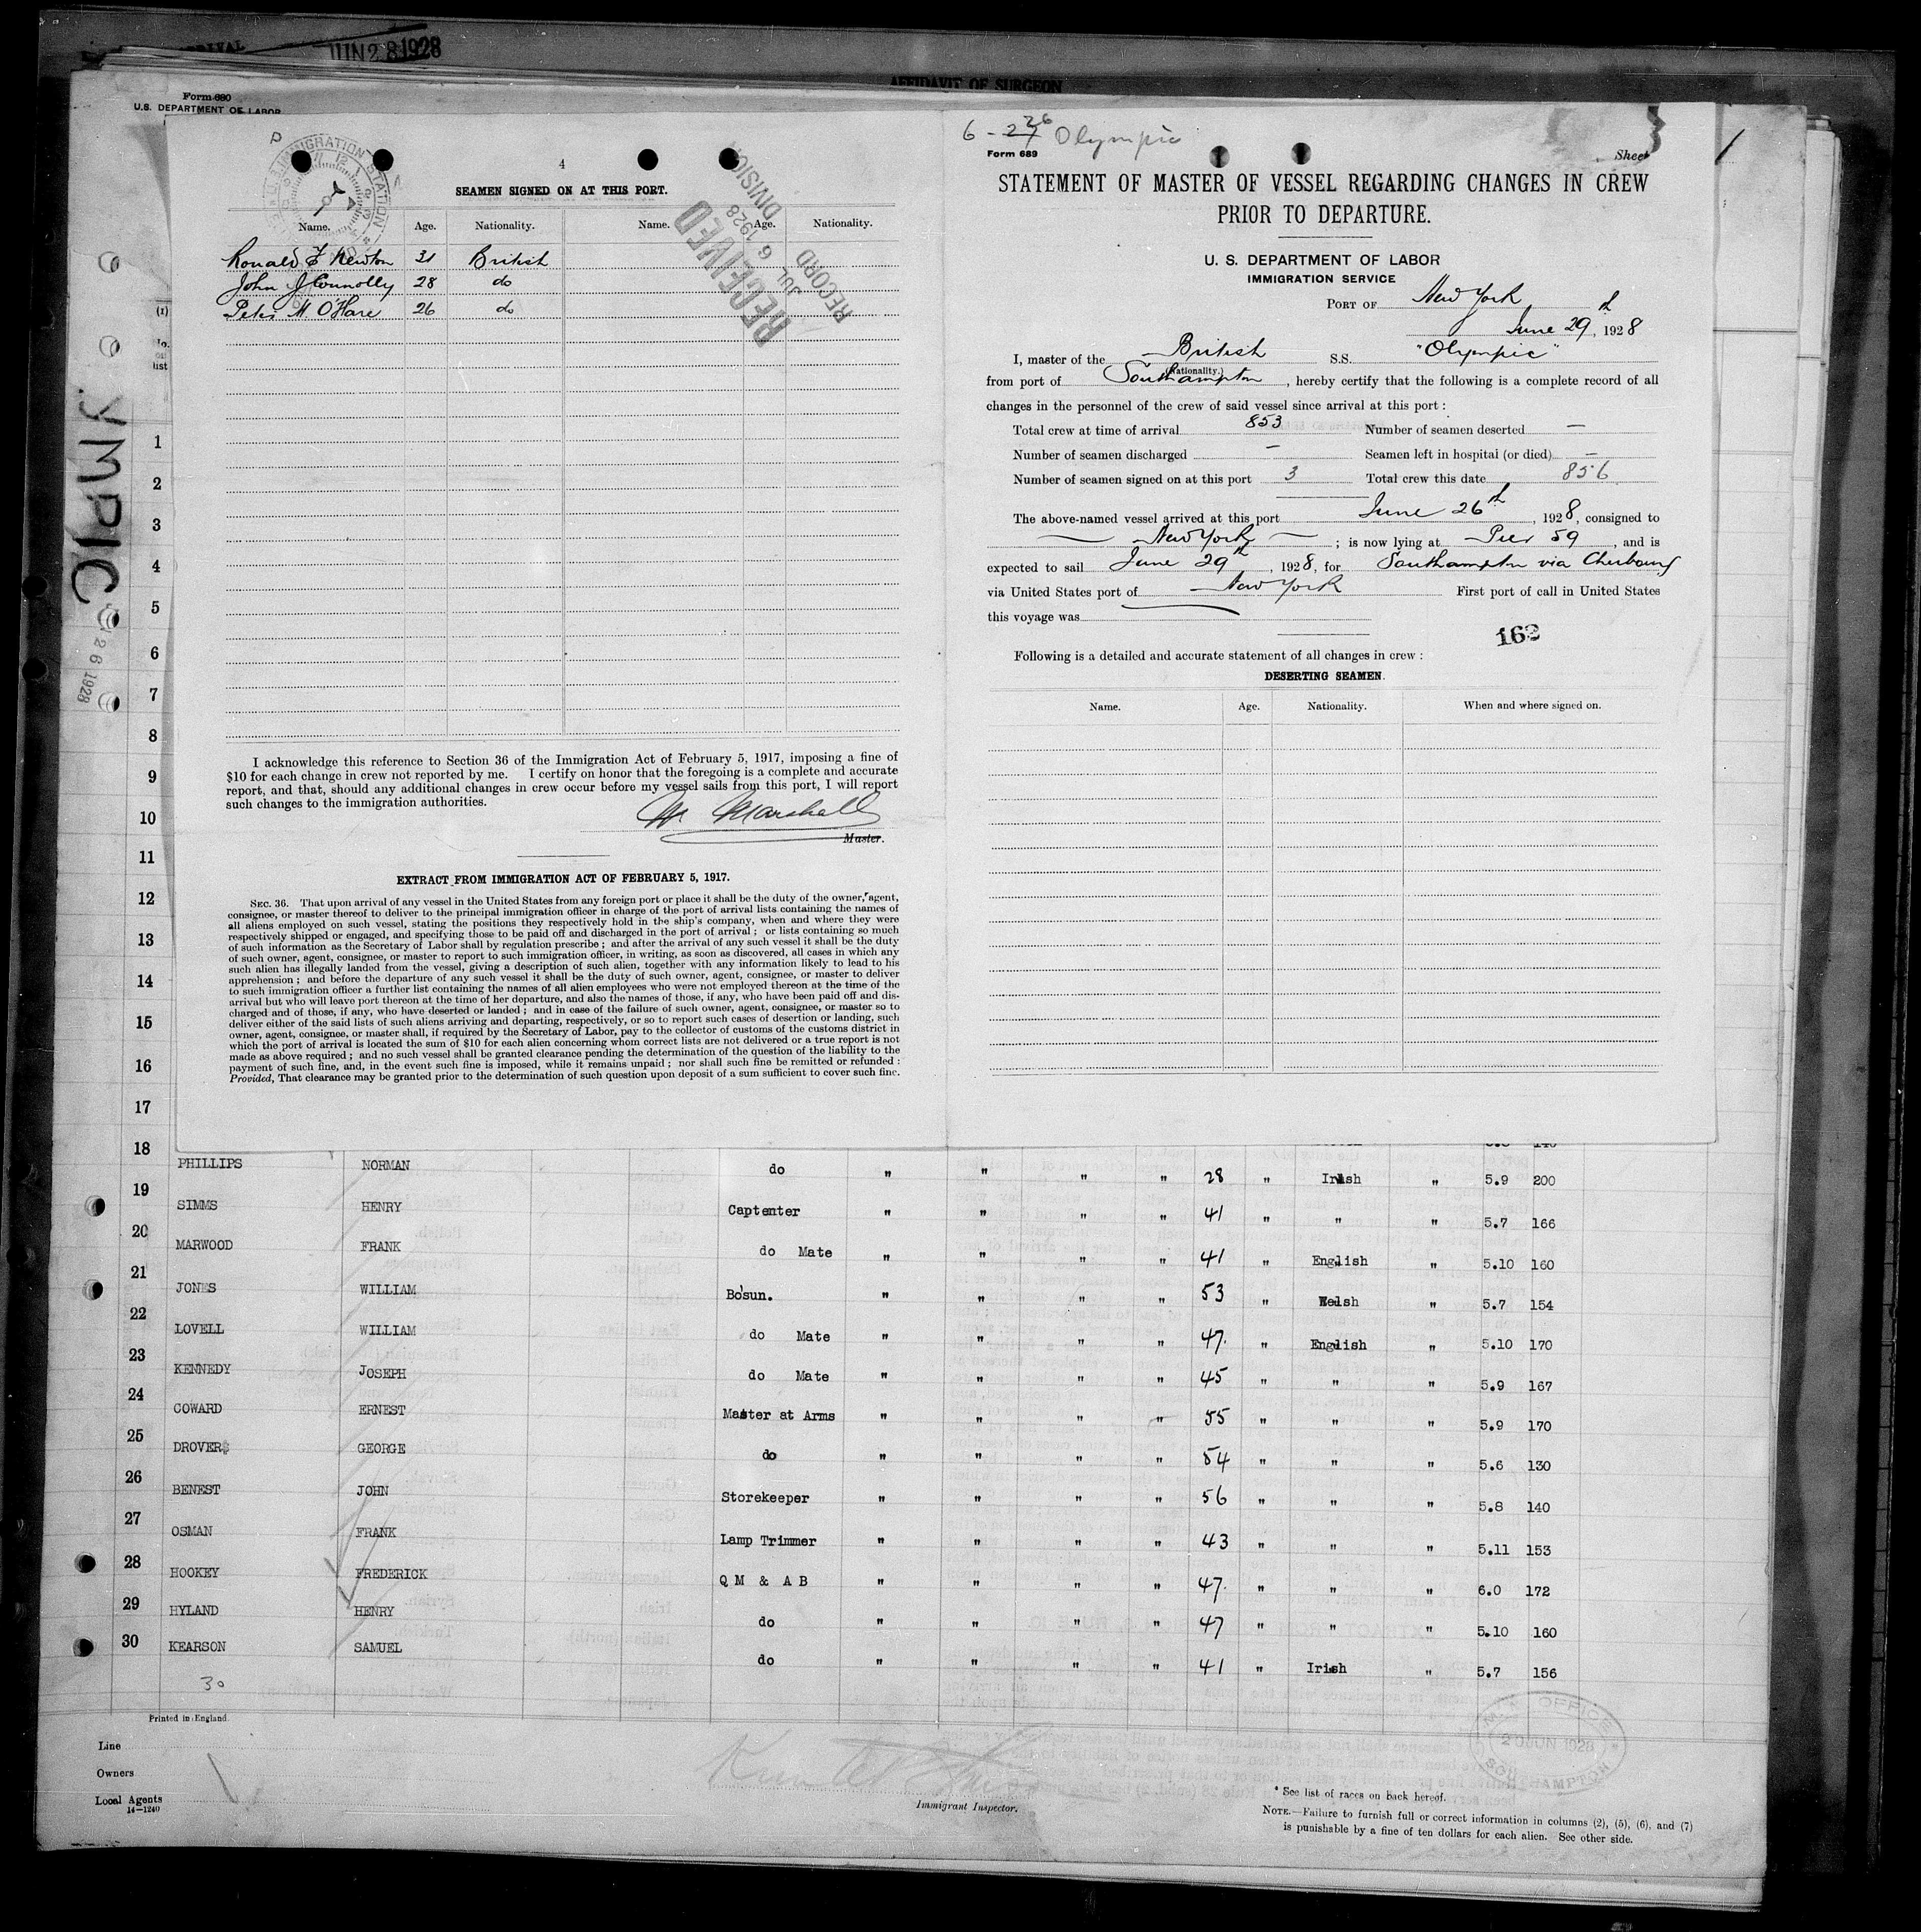 ARRIVAL
JUN 28 1928
AFFIDAVIT OF SURGEON
Form 680
U.S. DEPARTMENT OF LABOR
IMMIGRATION STATION
4
SEAMEN SIGNED ON AT THIS PORT.
Name. Age. Nationality. Name. Age. Nationality.
RECEIVED
JUL 6 1928
RECORD DIVISION
Ronald F Newton 31 British
John J Connolly 28 do
Peter M O'Hare 26 do
I acknowledge this reference to Section 36 of the Immigration Act of February 5, 1917, imposing a fine of
$10 for each change in crew not reported by me. I certify on honor that the foregoing is a complete and accurate
report, and that, should any additional changes in crew occur before my vessel sails from this port, I will report
such changes to the immigration authorities.
W Marshall
Master.
EXTRACT FROM IMMIGRATION ACT OF FEBRUARY 5, 1917.
SEC. 36. That upon arrival of any vessel in the United States from any foreign port or place it shall be the duty of the owner, agent,
consignee, or master thereof to deliver to the principal immigration officer in charge of the port of arrival lists containing the names of
all aliens employed on such vessel, stating the positions they respectively hold in the ship's company, when and where they were
respectively shipped or engaged, and specifying those to be paid off and discharged in the port of arrival; or lists containing so much
of such information as the Secretary of Labor shall by regulation prescribe; and after the arrival of any such vessel it shall be the duty
of such owner, agent, consignee, or master to report to such immigration officer, in writing, as soon as discovered, all cases in which any
such alien has illegally landed from the vessel, giving a description of such alien, together with any information likely to lead to his
apprehension; and before the departure of any such vessel it shall be the duty of such owner, agent, consignee, or master to deliver
to such immigration officer a further list containing the names of all alien employees who were not employed thereon at the time of the
arrival but who will leave port thereon at the time of her departure, and also the names of those, if any, who have been paid off and dis-
charged and of those, if any, who have deserted or landed; and in case of the failure of such owner, agent, consignee, or master so to
deliver either of the said lists of such aliens arriving and departing, respectively, or so to report such cases of desertion or landing, such
owner, agent, consignee, or master shall, if required by the Secretary of Labor, pay to the collector of customs of the customs district in
which the port of arrival is located the sum of $10 for each alien concerning whom correct lists are not delivered or a true report is not
made as above required; and no such vessel shall be granted clearance pending the determination of the question of the liability to the
payment of such fine, and, in the event such fine is imposed, while it remains unpaid; nor shall such fine be remitted or refunded:
Provided, That clearance may be granted prior to the determination of such question upon deposit of a sum sufficient to cover such fine.
6 - 27 26 Olympic
Form 689
Sheet
1
STATEMENT OF MASTER OF VESSEL REGARDING CHANGES IN CREW
PRIOR TO DEPARTURE.
U. S. DEPARTMENT OF LABOR
IMMIGRATION SERVICE
PORT OF New York
June 29th, 1928
I, master of the British S.S. "Olympic"
(Nationality.)
from port of Southampton, hereby certify that the following is a complete record of all
changes in the personnel of the crew of said vessel since arrival at this port:
Total crew at time of arrival 853 Number of seamen deserted —
Number of seamen discharged — Seamen left in hospital (or died) —
Number of seamen signed on at this port 3 Total crew this date 856
The above-named vessel arrived at this port June 26th, 1928, consigned to
New York; is now lying at Pier 59, and is
expected to sail June 29th, 1928, for Southampton via Cherbourg
via United States port of New York First port of call in United States
this voyage was
162
Following is a detailed and accurate statement of all changes in crew:
DESERTING SEAMEN.
Name. Age. Nationality. When and where signed on.
(1)
No.
on
list
YMPIC
26 1928
1
2
3
4
5
6
7
8
9
10
11
12
13
14
15
16
17
18 PHILLIPS NORMAN do " " " " 28 " Irish " 5.9 200
19 SIMMS HENRY Captenter " " " " 41 " " " 5.7 166
20 MARWOOD FRANK do Mate " " " " 41 " English " 5.10 160
21 JONES WILLIAM Bo'sun. " " " " 53 " Welsh " 5.7 154
22 LOVELL WILLIAM do Mate " " " " 47. " English " 5.10 170
23 KENNEDY JOSEPH do Mate " " " " 45 " " " 5.9 167
24 COWARD ERNEST Master at Arms " " " " 55 " " " 5.9 170
25 DROVER GEORGE do " " " " 54 " " " 5.6 130
26 BENEST JOHN Storekeeper " " " " 56 " " " 5.8 140
27 OSMAN FRANK Lamp Trimmer " " " " 43 " " " 5.11 153
28 HOOKEY FREDERICK Q M & A B " " " " 47. " " " 6.0 172
29 HYLAND HENRY do " " " " 47 " " " 5.10 160
30 KEARSON SAMUEL do " " " " 41 " Irish " 5.7 156
30
Printed in England.
Line
Owners
Local Agents
14-1240
Immigrant Inspector.
OFFICE
20 JUN 1928
SOUTHAMPTON
* See list of races on back hereof.
NOTE.—Failure to furnish full or correct information in columns (2), (5), (6), and (7)
is punishable by a fine of ten dollars for each alien. See other side.